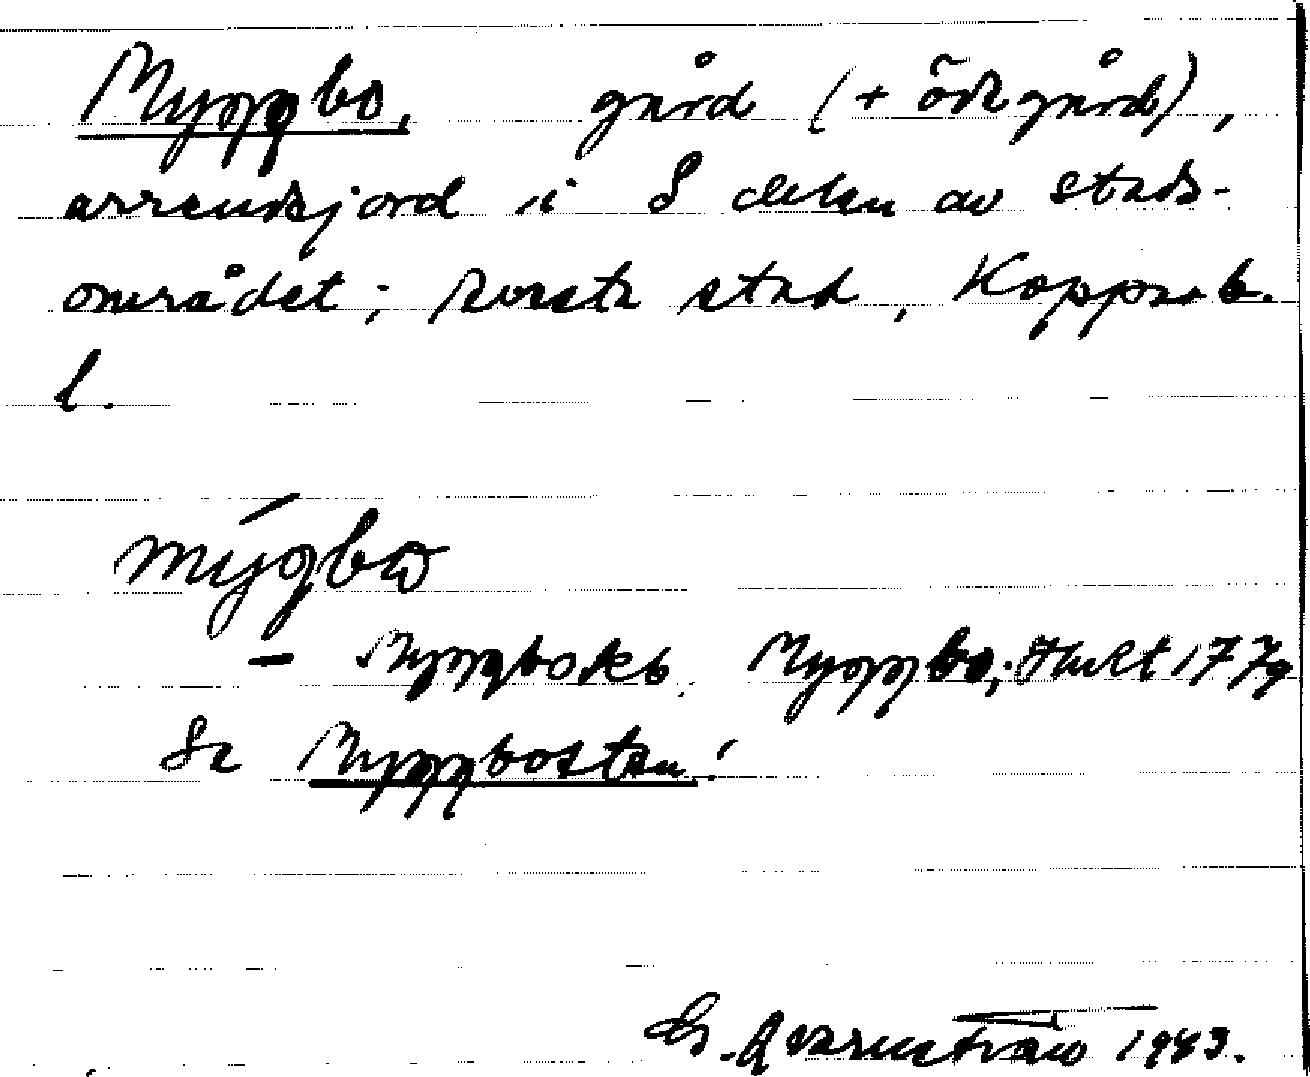 Myggbo, gård (+ ödegård),
arrendejord i S delen av stads-
området; Avesta stad, Kopparb.
l.
mýgbω
– Myggbokb. Myggbo; Hult 1779
Se Myggbosten!
G. Qvarnström 1943.